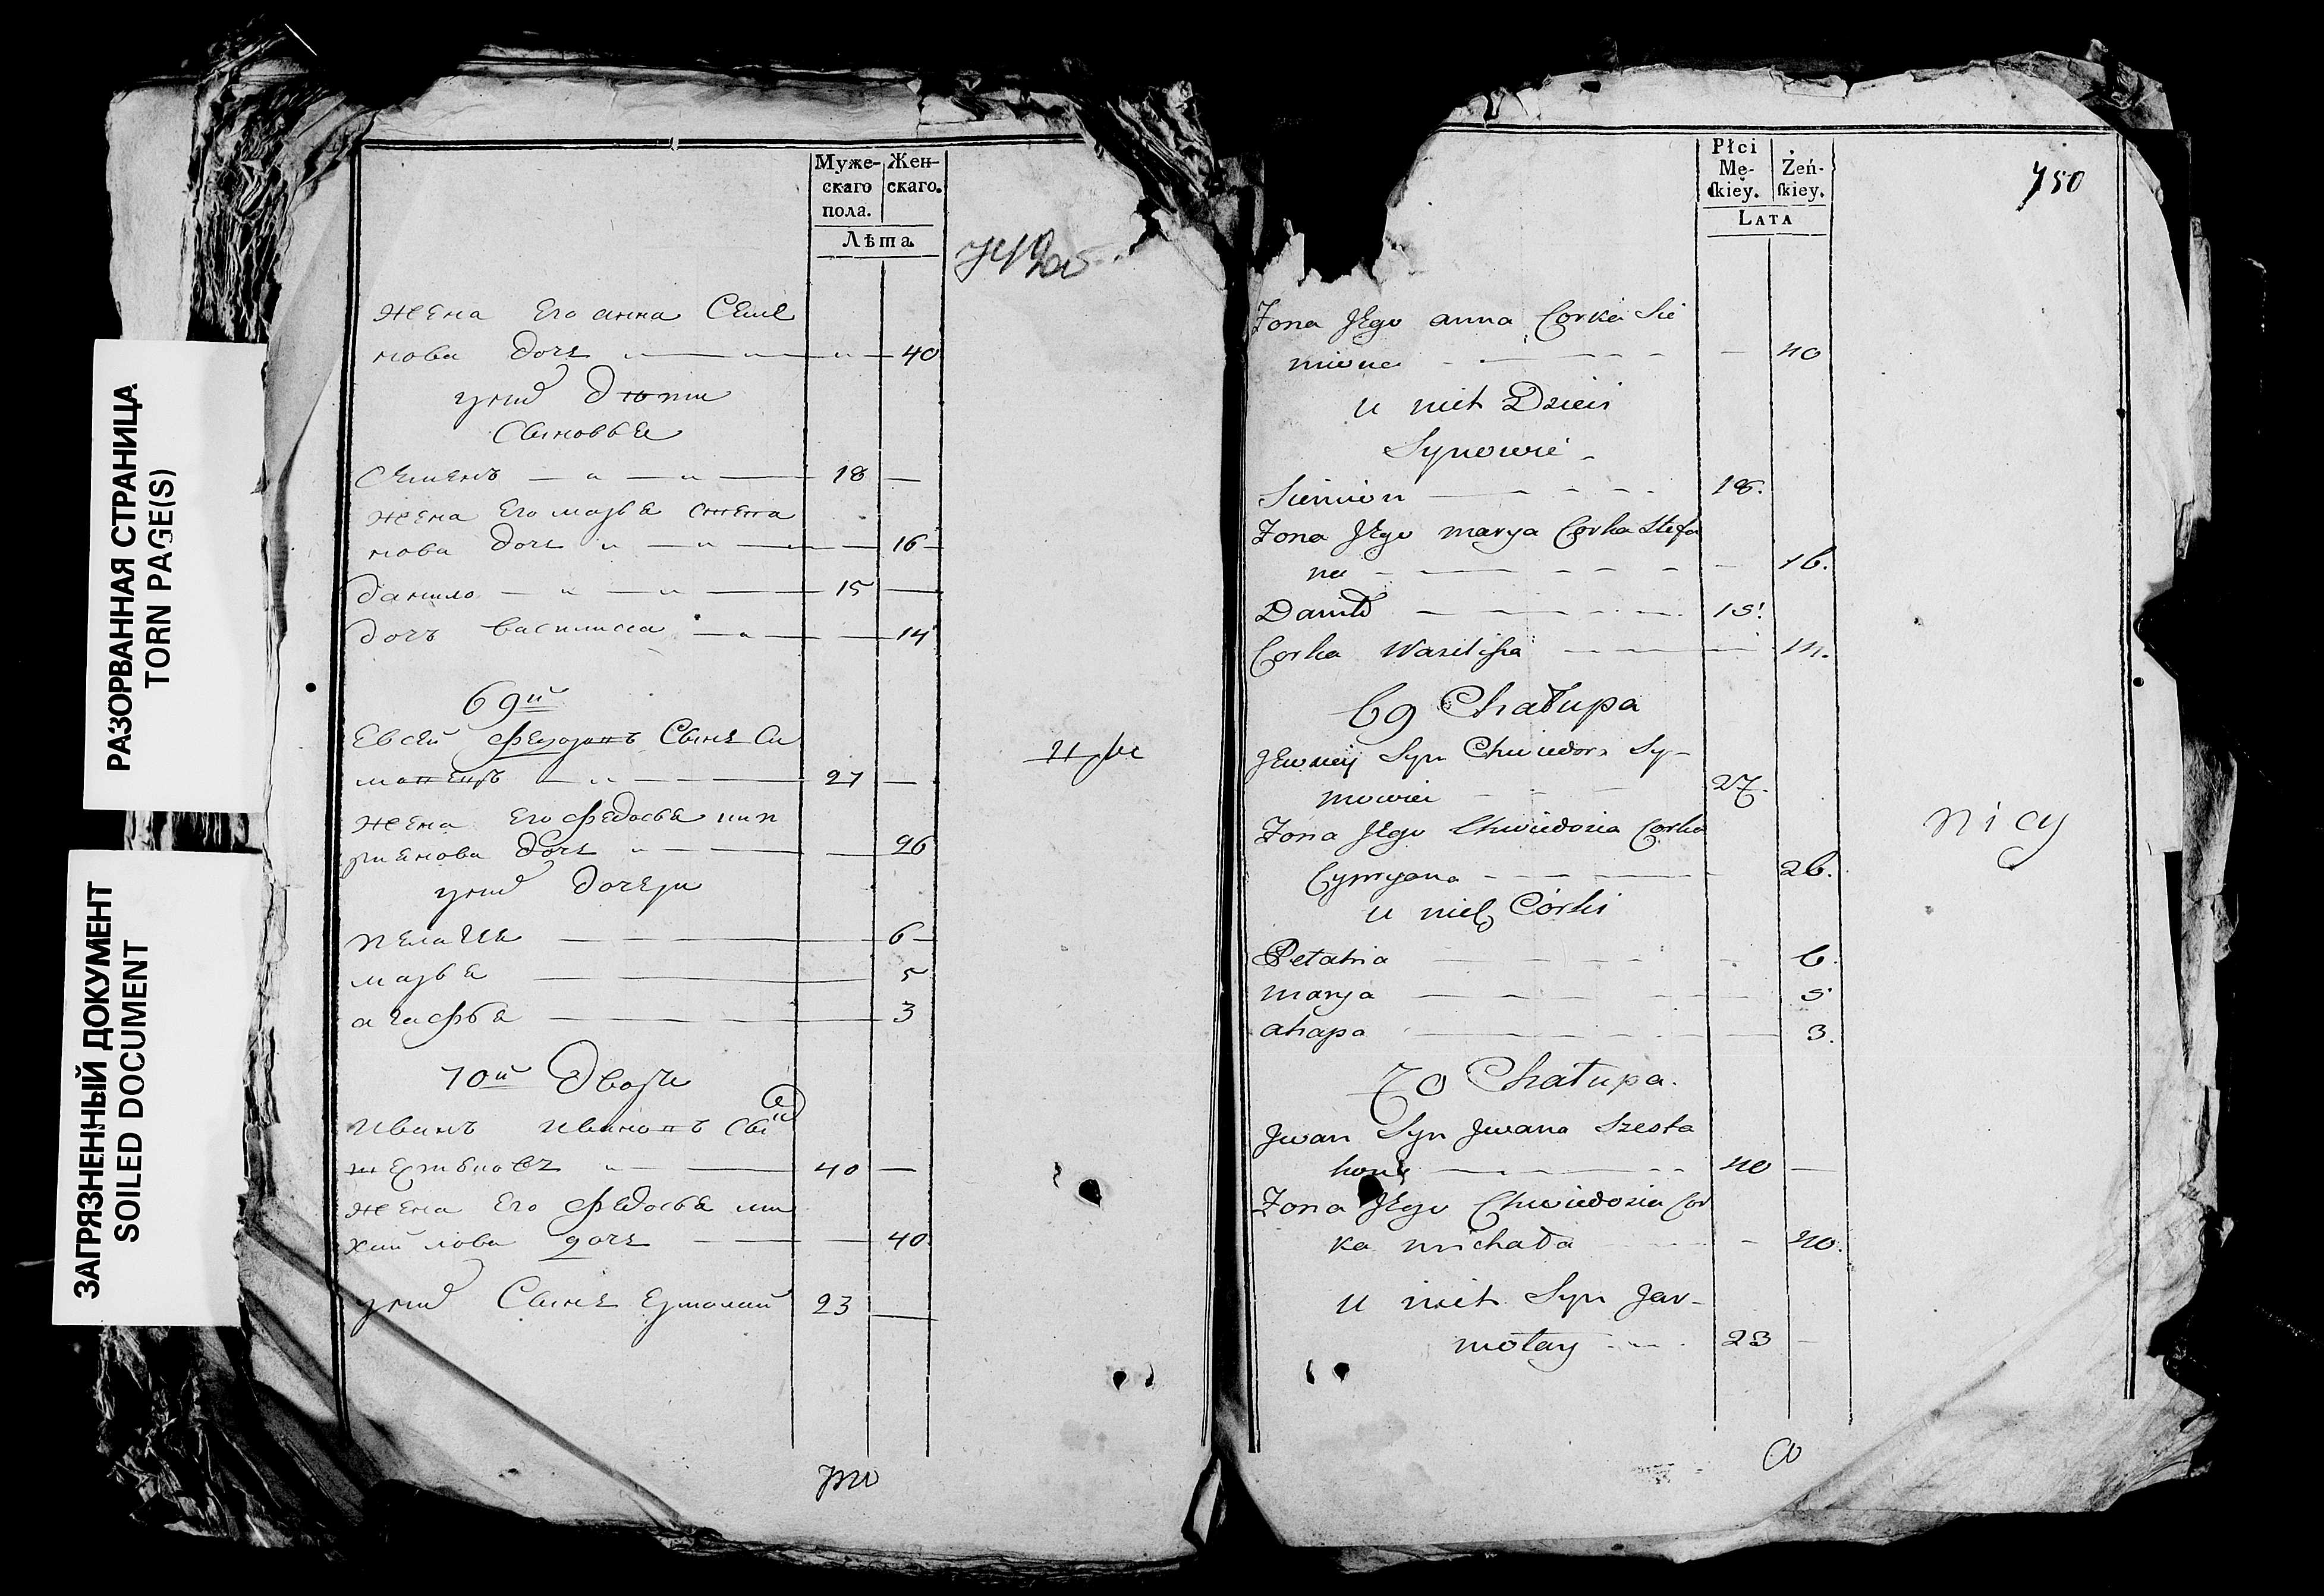 РАЗОРВАННАЯ СТРАНИЦА
TORN PAGE(S)
ЗАГРЯЗНЕННЫЙ ДОКУМЕНТ
SOILED DOCUMENT
Муже- Жен-
скаго скаго.
пола.
Лѣта
жена Его анна Семе
нова дочь 40
у них дѣти
Сыновья
Семенъ 18
жена Его марья степа
нова дочь 16
данило 15
дочь василиса 14
69й
Евсей Сынъ Си
27
жена Его федосья кип
рианова дочь 26
у них дочери
пелагея 6
марья 5
агафья 3
70й двора
Иванъ Ивановъ Сын
40
жена Его федосья ми
хайлова дочь 40
у них Сынъ Ермолай 23
Płci
Mę- Żeń-
skiey. skiey.
LATA
750
Zona Jego anna Corka Sie
miona 40
u nich Dzieci
Synowie
Siemion 18.
Zona Jego marya Corka Stefa
na 16.
Daniło 15.
Corka Wasilissa 14.
69 Chałupa
Jewsiey Syn Chwiedora Sy-
27.
Zona Jego Chwiedosia Corka
Cypryana 26.
u nich Córki
Pelahia 6.
marya 5
ahapa 3.
70 Chałupa.
Jwan Syn Jwana Szesta
40
Zona Jego Chwiedosia Cor
ka michała 40.
u nich Syn Jar-
mołay 23
nicy